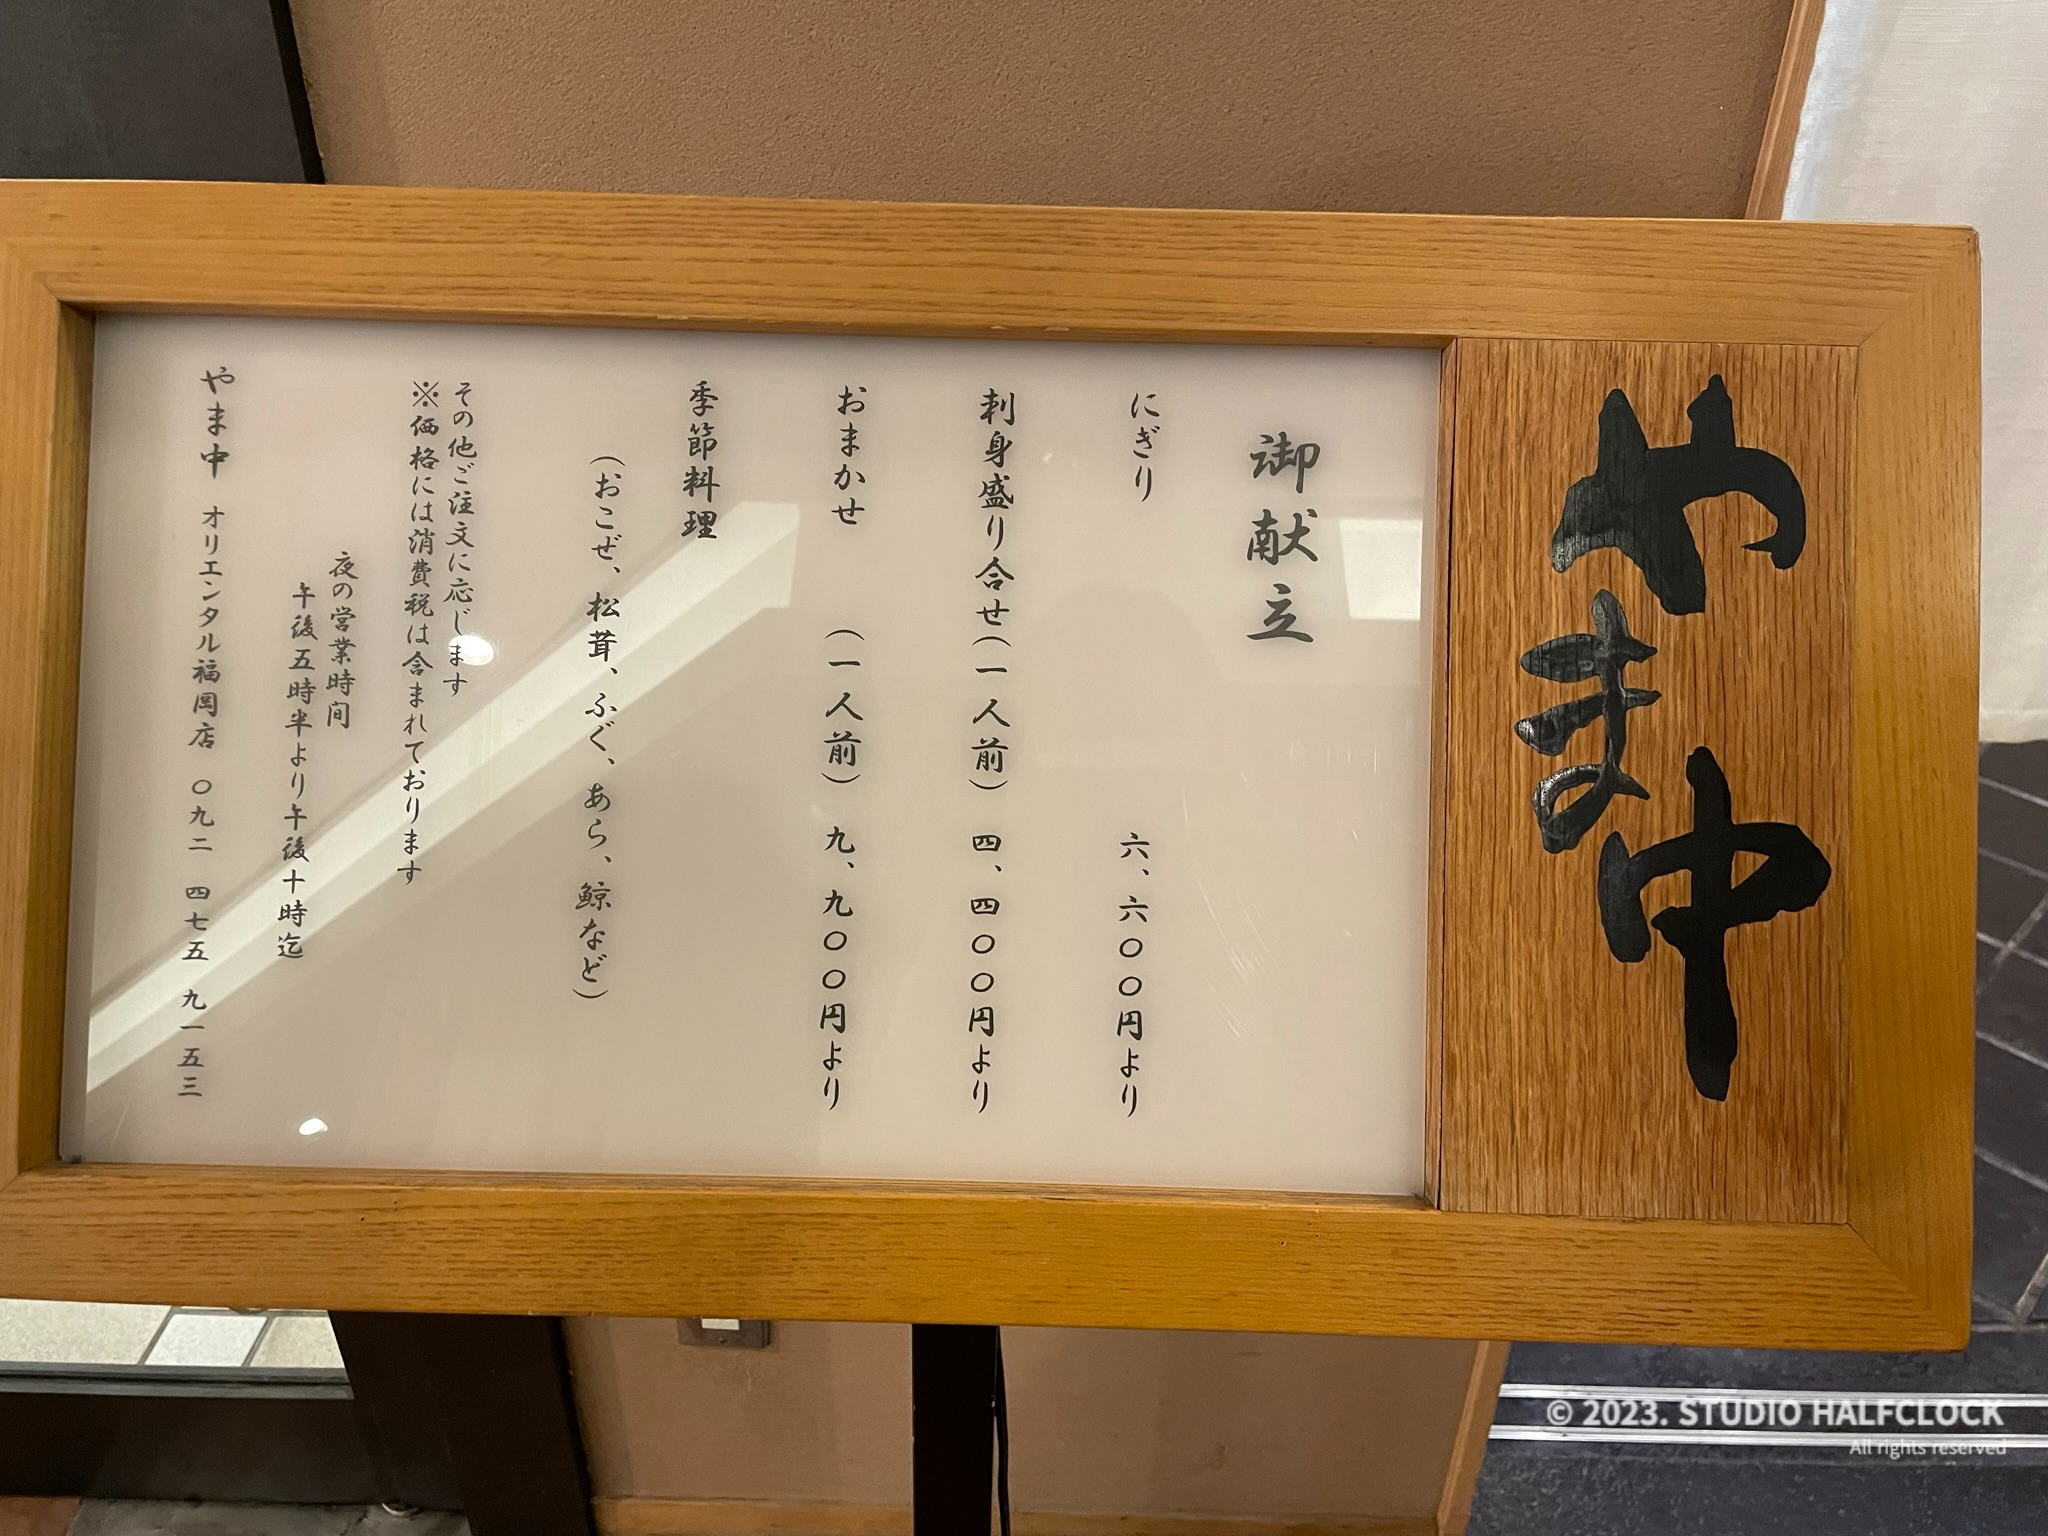 やま中
御献立
にぎり 六、六〇〇円より
刺身盛り合せ(一人前) 四、四〇〇円より
おまかせ (一人前) 九、九〇〇円より
季節料理
(おこぜ、松茸、ふぐ、あら、鯨など)
その他ご注文に応じます
※価格には消費税は含まれております
夜の営業時間
午後五時半より午後十時迄
やま中 オリエンタル福岡店 〇九二 四七五 九一五三
© 2023. STUDIO HALFCLOCK
All rights reserved